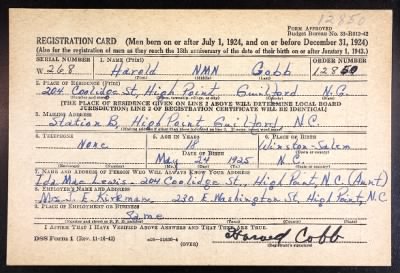 12850
FORM APPROVED
Budget Bureau No. 33-R012-42
REGISTRATION CARD (Men born on or after July 1, 1924, and on or before December 31, 1924)
(Also for the registration of men as they reach the 18th anniversary of the date of their birth on or after January 1, 1943.)
SERIAL NUMBER 1. NAME (Print) ORDER NUMBER
W 268 Harold NMN Cobb 12850
2. PLACE OF RESIDENCE (Print)
204 Coolidge St., High Point, Guilford N.C.
[THE PLACE OF RESIDENCE GIVEN ON LINE 2 ABOVE WILL DETERMINE LOCAL BOARD
JURISDICTION; LINE 2 OF REGISTRATION CERTIFICATE WILL BE IDENTICAL]
3. MAILING ADDRESS
Station B, High Point, Guilford N.C.
4. TELEPHONE 5. AGE IN YEARS 6. PLACE OF BIRTH
None 18 Winston-Salem
DATE OF BIRTH
May 24 1925 N.C.
7. NAME AND ADDRESS OF PERSON WHO WILL ALWAYS KNOW YOUR ADDRESS
Ida Mae Lewis - 204 Coolidge St., High Point, N.C. (Aunt)
8. EMPLOYER'S NAME AND ADDRESS
Mrs. J. E. Kirkman, 230 E. Washington St, High Point, N.C.
9. PLACE OF EMPLOYMENT OR BUSINESS
Same
I AFFIRM THAT I HAVE VERIFIED ABOVE ANSWERS AND THAT THEY ARE TRUE.
DSS Form 1 (Rev. 11-16-42) (OVER) Harold Cobb